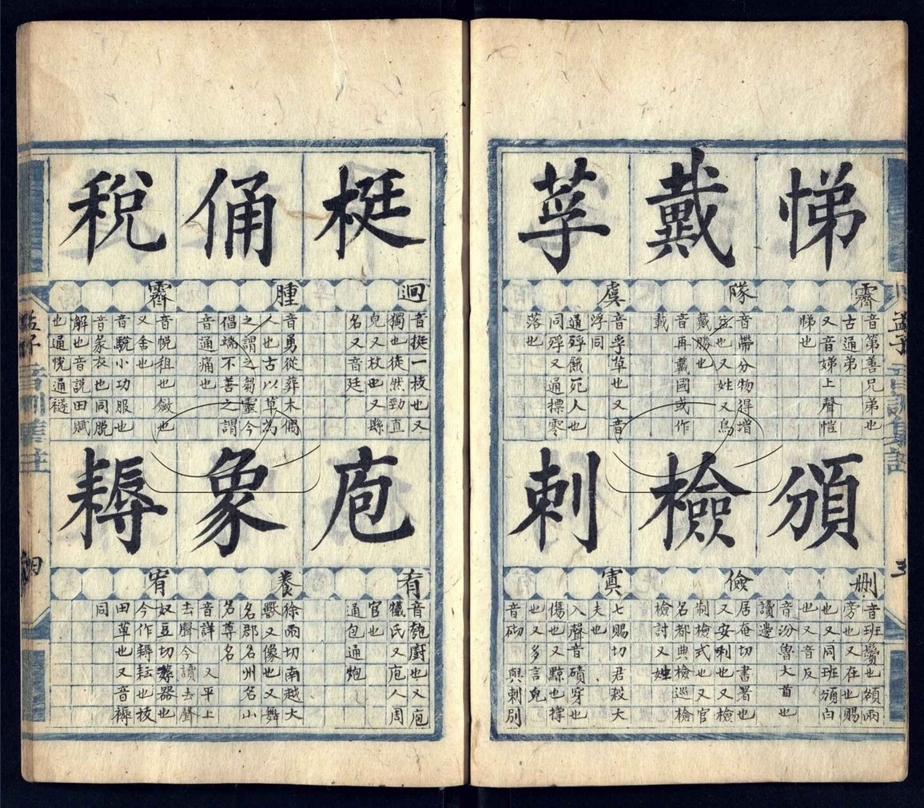 孟子音訓集註
悌
霽
音第善兄弟也
古通弟
又音娣上聲愷
悌也
戴
隊
音帶分物得增
益也又姓又鳥
戴勝也
音再戴國或作
載
莩
虞
音孚草也又音
浮同
通殍餓死人也
同殍又通摽零
落也
頒
刪
音班鬢也頒兩
旁也又在也賜
也又同班頒白
也又音反
音汾魯大首也
讀邊
檢
儉
居奄切書署也
又安制也又
制檢式也又官
名都典檢巡檢
檢討又姓
刺
寘
七賜切君殺大
夫也
入聲音磧穿也
傷也又黥也撑
也又多言皃
音砌 與剌別
梃
迥
音挺一枝也又
獨也徒然勁直
皃又杖也又縣
名又音廷
俑
腫
音勇從葬木偶
人也古以草為
之謂之芻靈今
倡端不善之謂
音通痛也
稅
霽
音帨租也斂也
又舍也
音駾小功服也
音蒙衣也同脫
解也音說田賦
也通悅通襚
庖
肴
音匏廚也又庖
犧氏又庖人周
官也
通包通炮
象
養
徐兩切南越大
獸又像也又舞
名郡名州名山
名尊名
音詳 又平上
去聲今讀去聲
耨
宥
奴豆切薅器也
今作耨耘也拔
田草也又音槈
同
孟子音訓集註
四